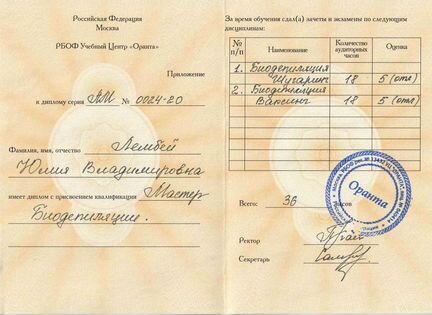 Российская Федерация
Москва
РБОФ Учебный Центр «Оранта»
Приложение
к диплому серия АМ № 0024-20
Фамилия, имя, отчество Лембей
Юлия Владимировна
имеет диплом с присвоением квалификации Мастер
Биодепиляции.
За время обучения сдал(а) зачеты и экзамены по следующим
дисциплинам:
№ п/п Наименование Количество аудиторных часов Оценка
1. Биодепиляция
Шугаринг 18 5 (отл)
2. Биодепиляция
Ваксинг 18 5 (отл)
Всего: 36 часов
Оранта
Ректор
Секретарь